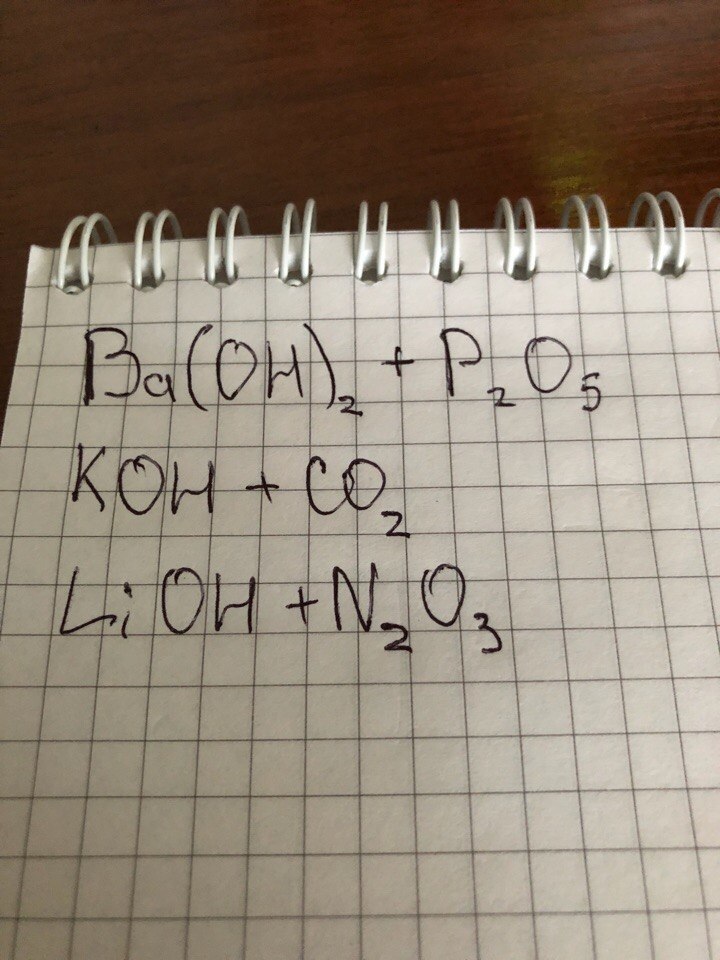 Ba(OH)₂ + P₂O₅
KOH + CO₂
LiOH + N₂O₃